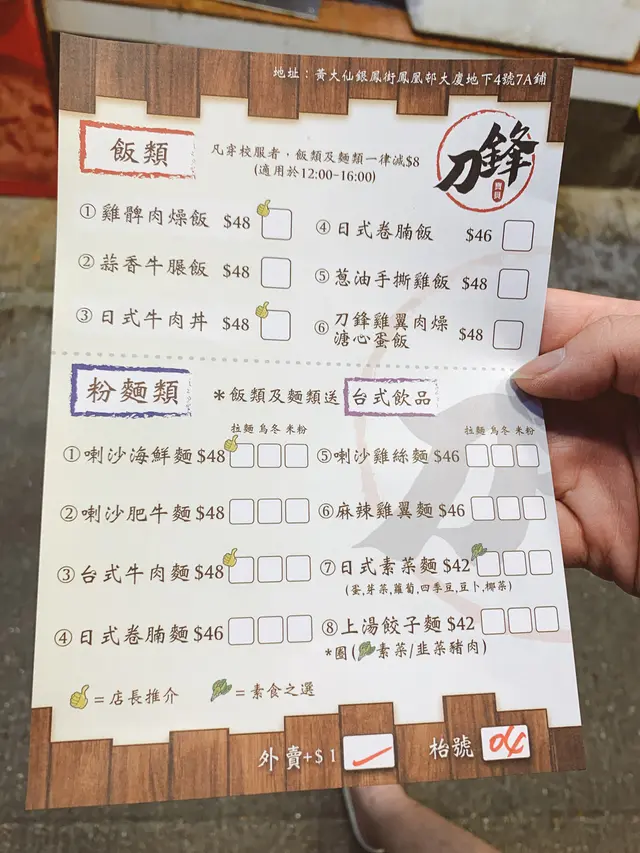 地址：黃大仙銀鳳街鳳凰邨大廈地下4號7A鋪
飯類
凡穿校服者，飯類及麵類一律減$8
(適用於12:00-16:00)
刀鋒
寶貝
①雞髀肉燥飯 $48
②蒜香牛𦟌飯 $48
③日式牛肉丼 $48
④日式卷腩飯 $46
⑤蔥油手撕雞飯 $48
⑥刀鋒雞翼肉燥
溏心蛋飯 $48
粉麵類
*飯類及麵類送 台式飲品
拉麵 烏冬 米粉
①喇沙海鮮麵 $48
②喇沙肥牛麵 $48
③台式牛肉麵 $48
④日式卷腩麵 $46
拉麵 烏冬 米粉
⑤喇沙雞絲麵 $46
⑥麻辣雞翼麵 $46
⑦日式素菜麵 $42
(蛋,芽菜,蘿蔔,四季豆,豆卜,椰菜)
⑧上湯餃子麵 $42
*圈(素菜/韭菜豬肉)
=店長推介
=素食之選
外賣+$1
枱號 04